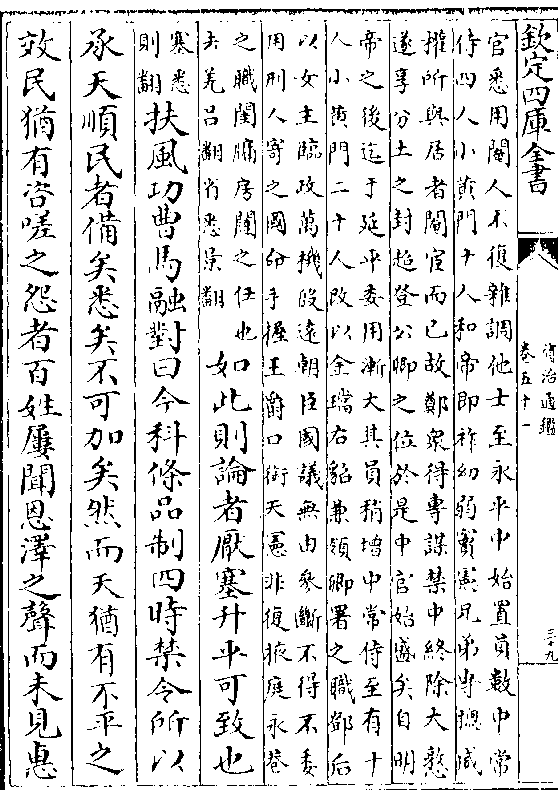 欽定四庫全書
資治通鑑
卷五十一
三十九
官悉用閹人不復雜調他士至永平中始置員數中常
侍四人小黄門十人和帝即祚幼弱竇憲兄弟專總威
權所與居者閹宦而已故鄭衆得專謀禁中終除大憝
遂享分土之封超登公卿之位於是中官始盛矣自明
帝之後迄于延平委用漸大其員稍增中常侍至有十
人小黄門二十人改以金璫右貂兼領卿署之職鄧后
以女主臨政萬機殷遠朝臣國議無由參斷不得不委
用刑人寄之國命手握王爵口銜天憲非復掖庭永巷
之職閨牖房闥之任也
夫羌呂翻省悉景翻
如此則論者厭塞升平可致也
塞悉
則翻
扶風功曹馬融對曰今科條品制四時禁令所以
承天順民者備矣悉矣不可加矣然而天猶有不平之
效民猶有咨嗟之怨者百姓屢聞恩澤之聲而未見惠